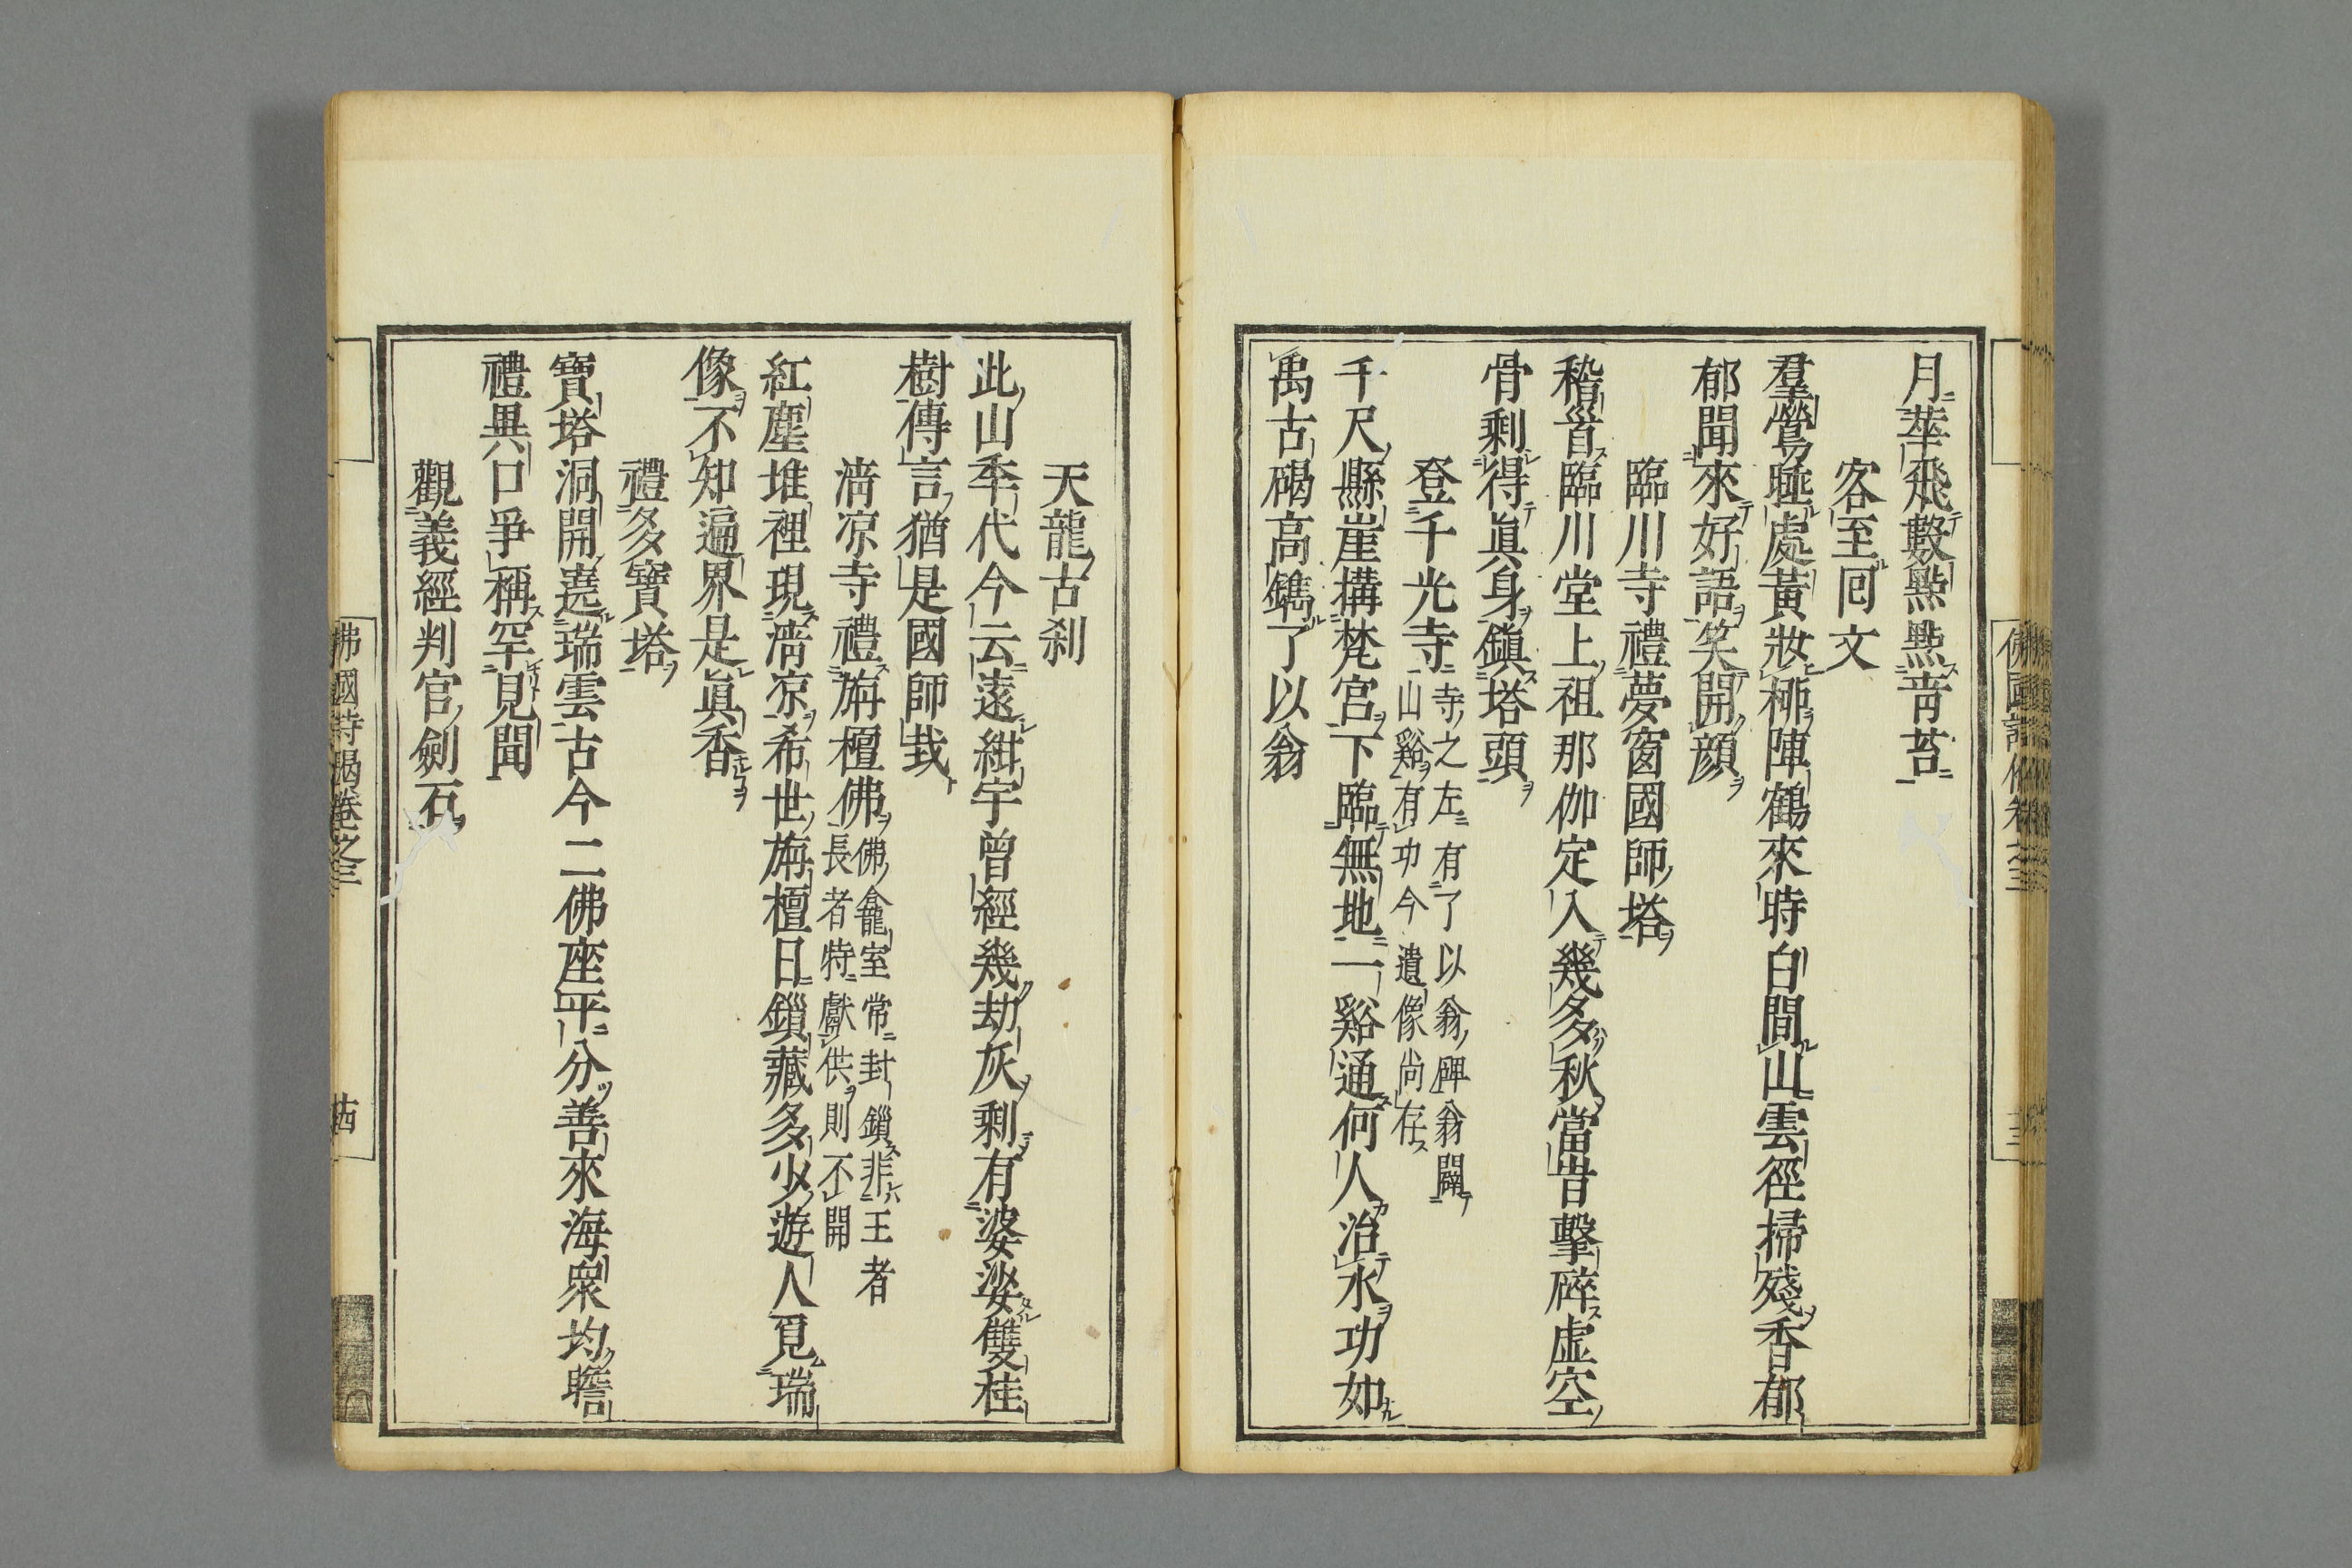 月華飛數點點靑苔
客至囘文
羣鶯睡處黃妝柳陣鶴來時白間山雲徑掃殘香郁
郁聞來好語笑開顔
臨川寺禮夢窗國師塔
稽首臨川堂上祖那伽定入幾多秋當昔擊碎虛空
骨剩得眞身鎭塔頭
登千光寺寺之左有了以翁碑翁闢
山谿有功今遺像尚存
千尺縣崖構梵宮下臨無地一谿通何人治水功如
禹古碣高鐫了以翁
佛國詩偈卷之三
十三
天龍古刹
此山秊代今云遠紺宇曾經幾劫灰剩有婆娑雙桂
樹傳言猶是國師栽
淸凉寺禮旃檀佛佛龕室常封鎖非王者
長者特獻供則不開
紅塵堆裡現淸凉希世旃檀日鎖藏多少遊人覓瑞
像不知遍界是眞香
禮多寶塔
寶塔洞開遶瑞雲古今二佛座平分善來海衆均瞻
禮異口爭稱罕見聞
觀義經判官劍石
佛國詩偈卷之三